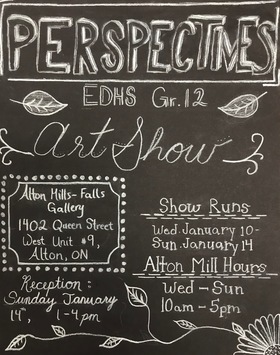 PERSPECTIVES
EDHS Gr. 12
Art Show
Alton Mills-Falls
Gallery
1402 Queen Street
West Unit #9,
Alton, ON
Show Runs
Wed. January 10-
Sun. January 14
Alton Mill Hours
Wed - Sun
10am - 5pm
Reception:
Sunday January
14th, 1-4pm